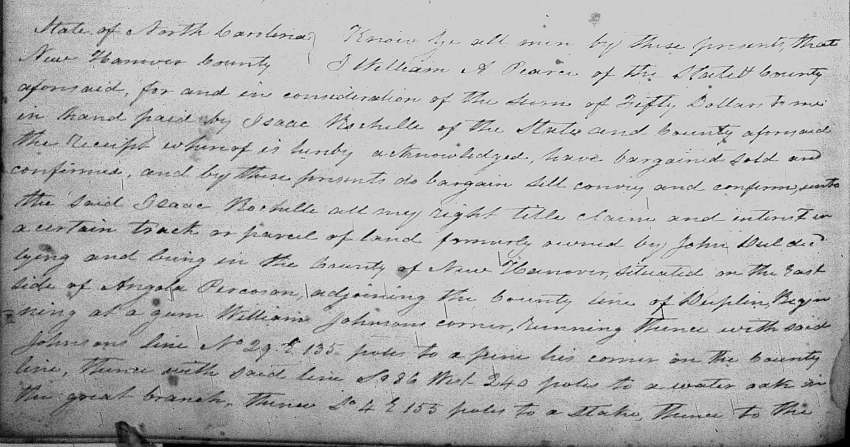 State of North Carolina } Know ye all men by these presents, that
New Hanover County I William A Pearce of the State & County
aforesaid, for and in consideration of the sum of Fifty Dollars to me
in hand paid by Isaac Rochelle of the State and County aforesaid
the Receipt whereof is hereby acknowledged, have bargained sold and
confirmed, and by these presents do bargain sell convey and confirm, unto
the said Isaac Rochelle all my right title claim and interest in
a certain track or parcel of land formerly owned by John
lying and being in the County of New Hanover, situated on the East
side of Angola Percoson, adjoining the County line of Duplin, Begin
ning at a gum William Johnsons corner, running thence with said
Johnsons line No 29 E 135 poles to a pine his corner on the County
line, thence with said line So 86 West 240 poles to a water oak in
the great branch, thence So 4 E 155 poles to a Stake, thence to the